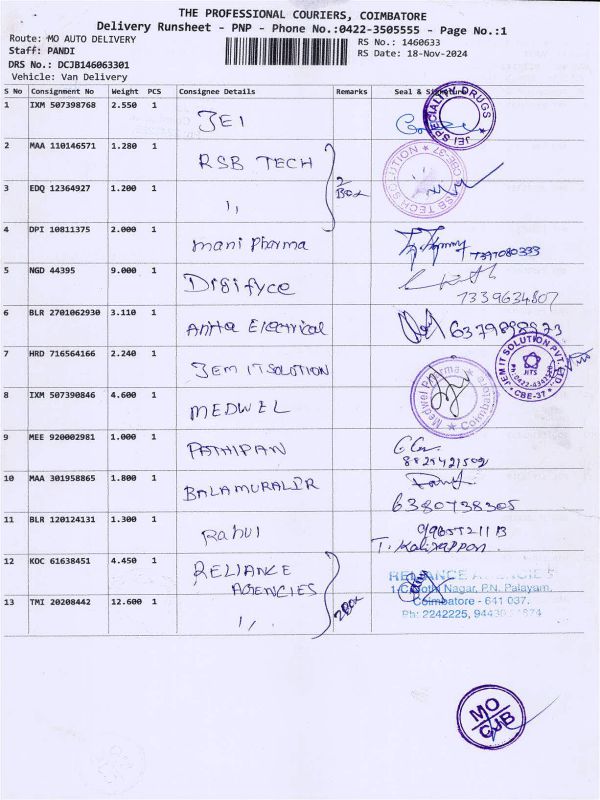 THE PROFESSIONAL COURIERS, COIMBATORE
Delivery Runsheet - PNP - Phone No.:0422-3505555 - Page No.:1
Route: MO AUTO DELIVERY
RS No.: 1460633
Staff: PANDI
RS Date: 18-Nov-2024
DRS No.: DCJB146063301
Vehicle: Van Delivery
S No Consignment No Weight PCS Consignee Details Remarks Seal & Signature
1 IXM 507398768 2.550 1 JEI
JEI SPECIALITY DRUGS
2 MAA 110146571 1.280 1 RSB TECH
2 Box
RSB TECH SOLUTION CBE-37
3 EDQ 12364927 1.200 1 1,
4 DPI 10811375 2.000 1 mani Pharma
5 NGD 44395 9.000 1 Digifyce
7339634807
6 BLR 2701062930 3.110 1 Anita Electrical
7 HRD 716564166 2.240 1 JEM IT SOLUTION
JEM IT SOLUTION PVT. LTD.
JITS
CBE-37
8 IXM 507390846 4.600 1 MEDWEL
Medwel Pharma Coimbatore
9 MEE 920002981 1.000 1 PATHIPAN
10 MAA 301958865 1.800 1 BALAMURALIR
6380738305
11 BLR 120124131 1.300 1 Rahul
12 KOC 61638451 4.450 1 RELIANCE AGENCIES
2 Box
RELIANCE AGENCIES
Nagar, P.N. Palayam,
Coimbatore - 641 037.
Ph: 2242225,
13 TMI 20208442 12.600 1 1,
MO
CJB